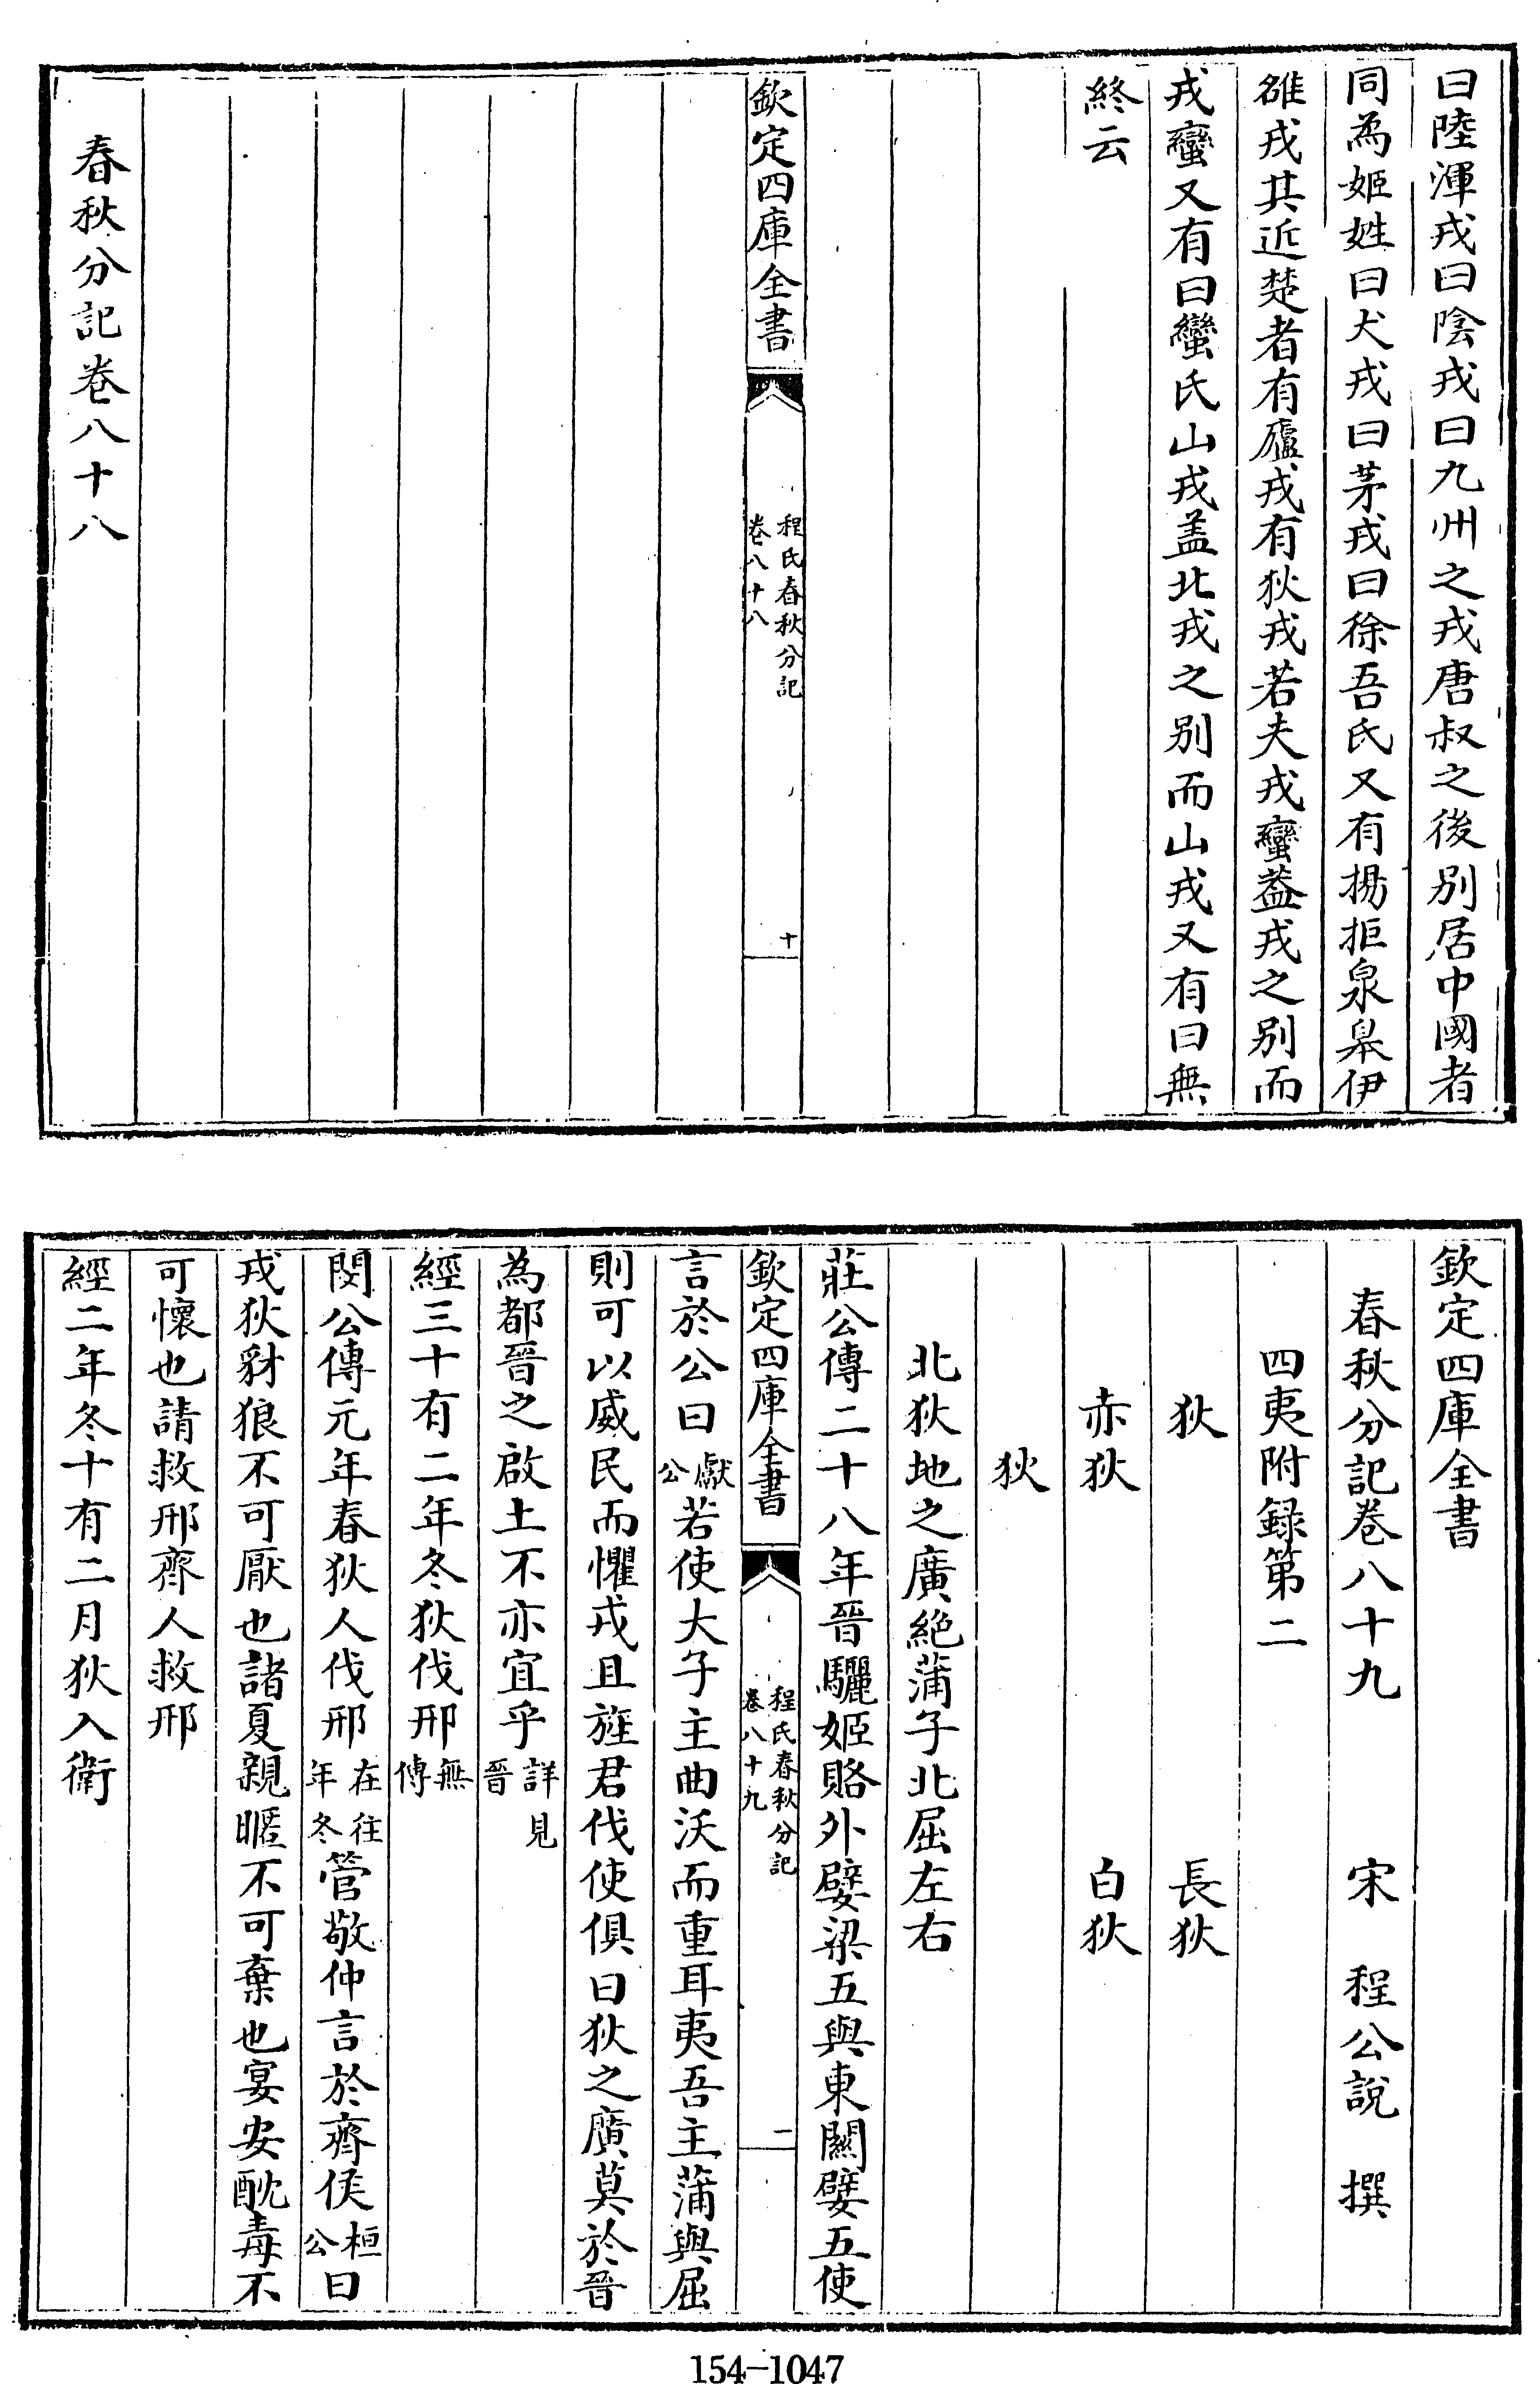 曰陸渾戎曰陰戎曰九州之戎唐叔之後别居中國者
同為姬姓曰犬戎曰茅戎曰徐吾氏又有揚拒泉臯伊
雒戎其近楚者有廬戎有狄戎若夫戎蠻葢戎之别而
戎蠻又有曰蠻氏山戎盖北戎之别而山戎又有曰無
終云
欽定四庫全書
程氏春秋分記
卷八十八
十
春秋分記卷八十八
欽定四庫全書
春秋分記卷八十九 宋 程公說 撰
四夷附録第二
狄 長狄
赤狄 白狄
狄
北狄地之廣絶蒲子北屈左右
莊公傳二十八年晉驪姬賂外嬖梁五與東關嬖五使
欽定四庫全書
程氏春秋分記
卷八十九
一
言於公曰獻公若使大子主曲沃而重耳夷吾主蒲與屈
則可以威民而懼戎且旌君伐使俱曰狄之廣莫於晉
為都晉之啟土不亦宜乎詳見晉
經三十有二年冬狄伐邢無傳
閔公傳元年春狄人伐邢在往年冬管敬仲言於齊侯桓公曰
戎狄豺狼不可厭也諸夏親暱不可棄也宴安酖毒不
可懷也請救邢齊人救邢
經二年冬十有二月狄入衛
154-1047